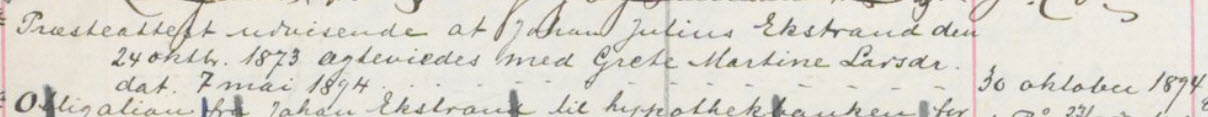 Præsteattest udvisende at Johan Julius Ekstrand den
24 oktbr. 1873 ægteviedes med Grete Martine Larsdr.
dat. 7 mai 1894. 30 oktober 1894
Obligation fra Johan Ekstrand til hypothekbanken for